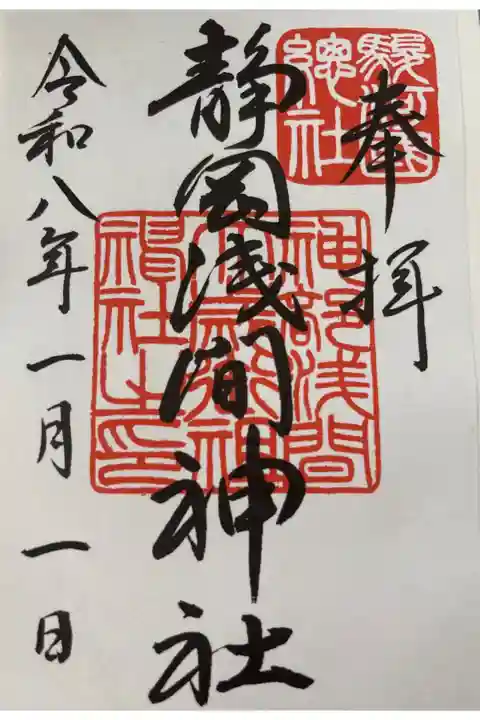 奉拝
駿河国
総社
静岡浅間神社
神部浅間
大歳御祖
神社之印
令和八年一月一日